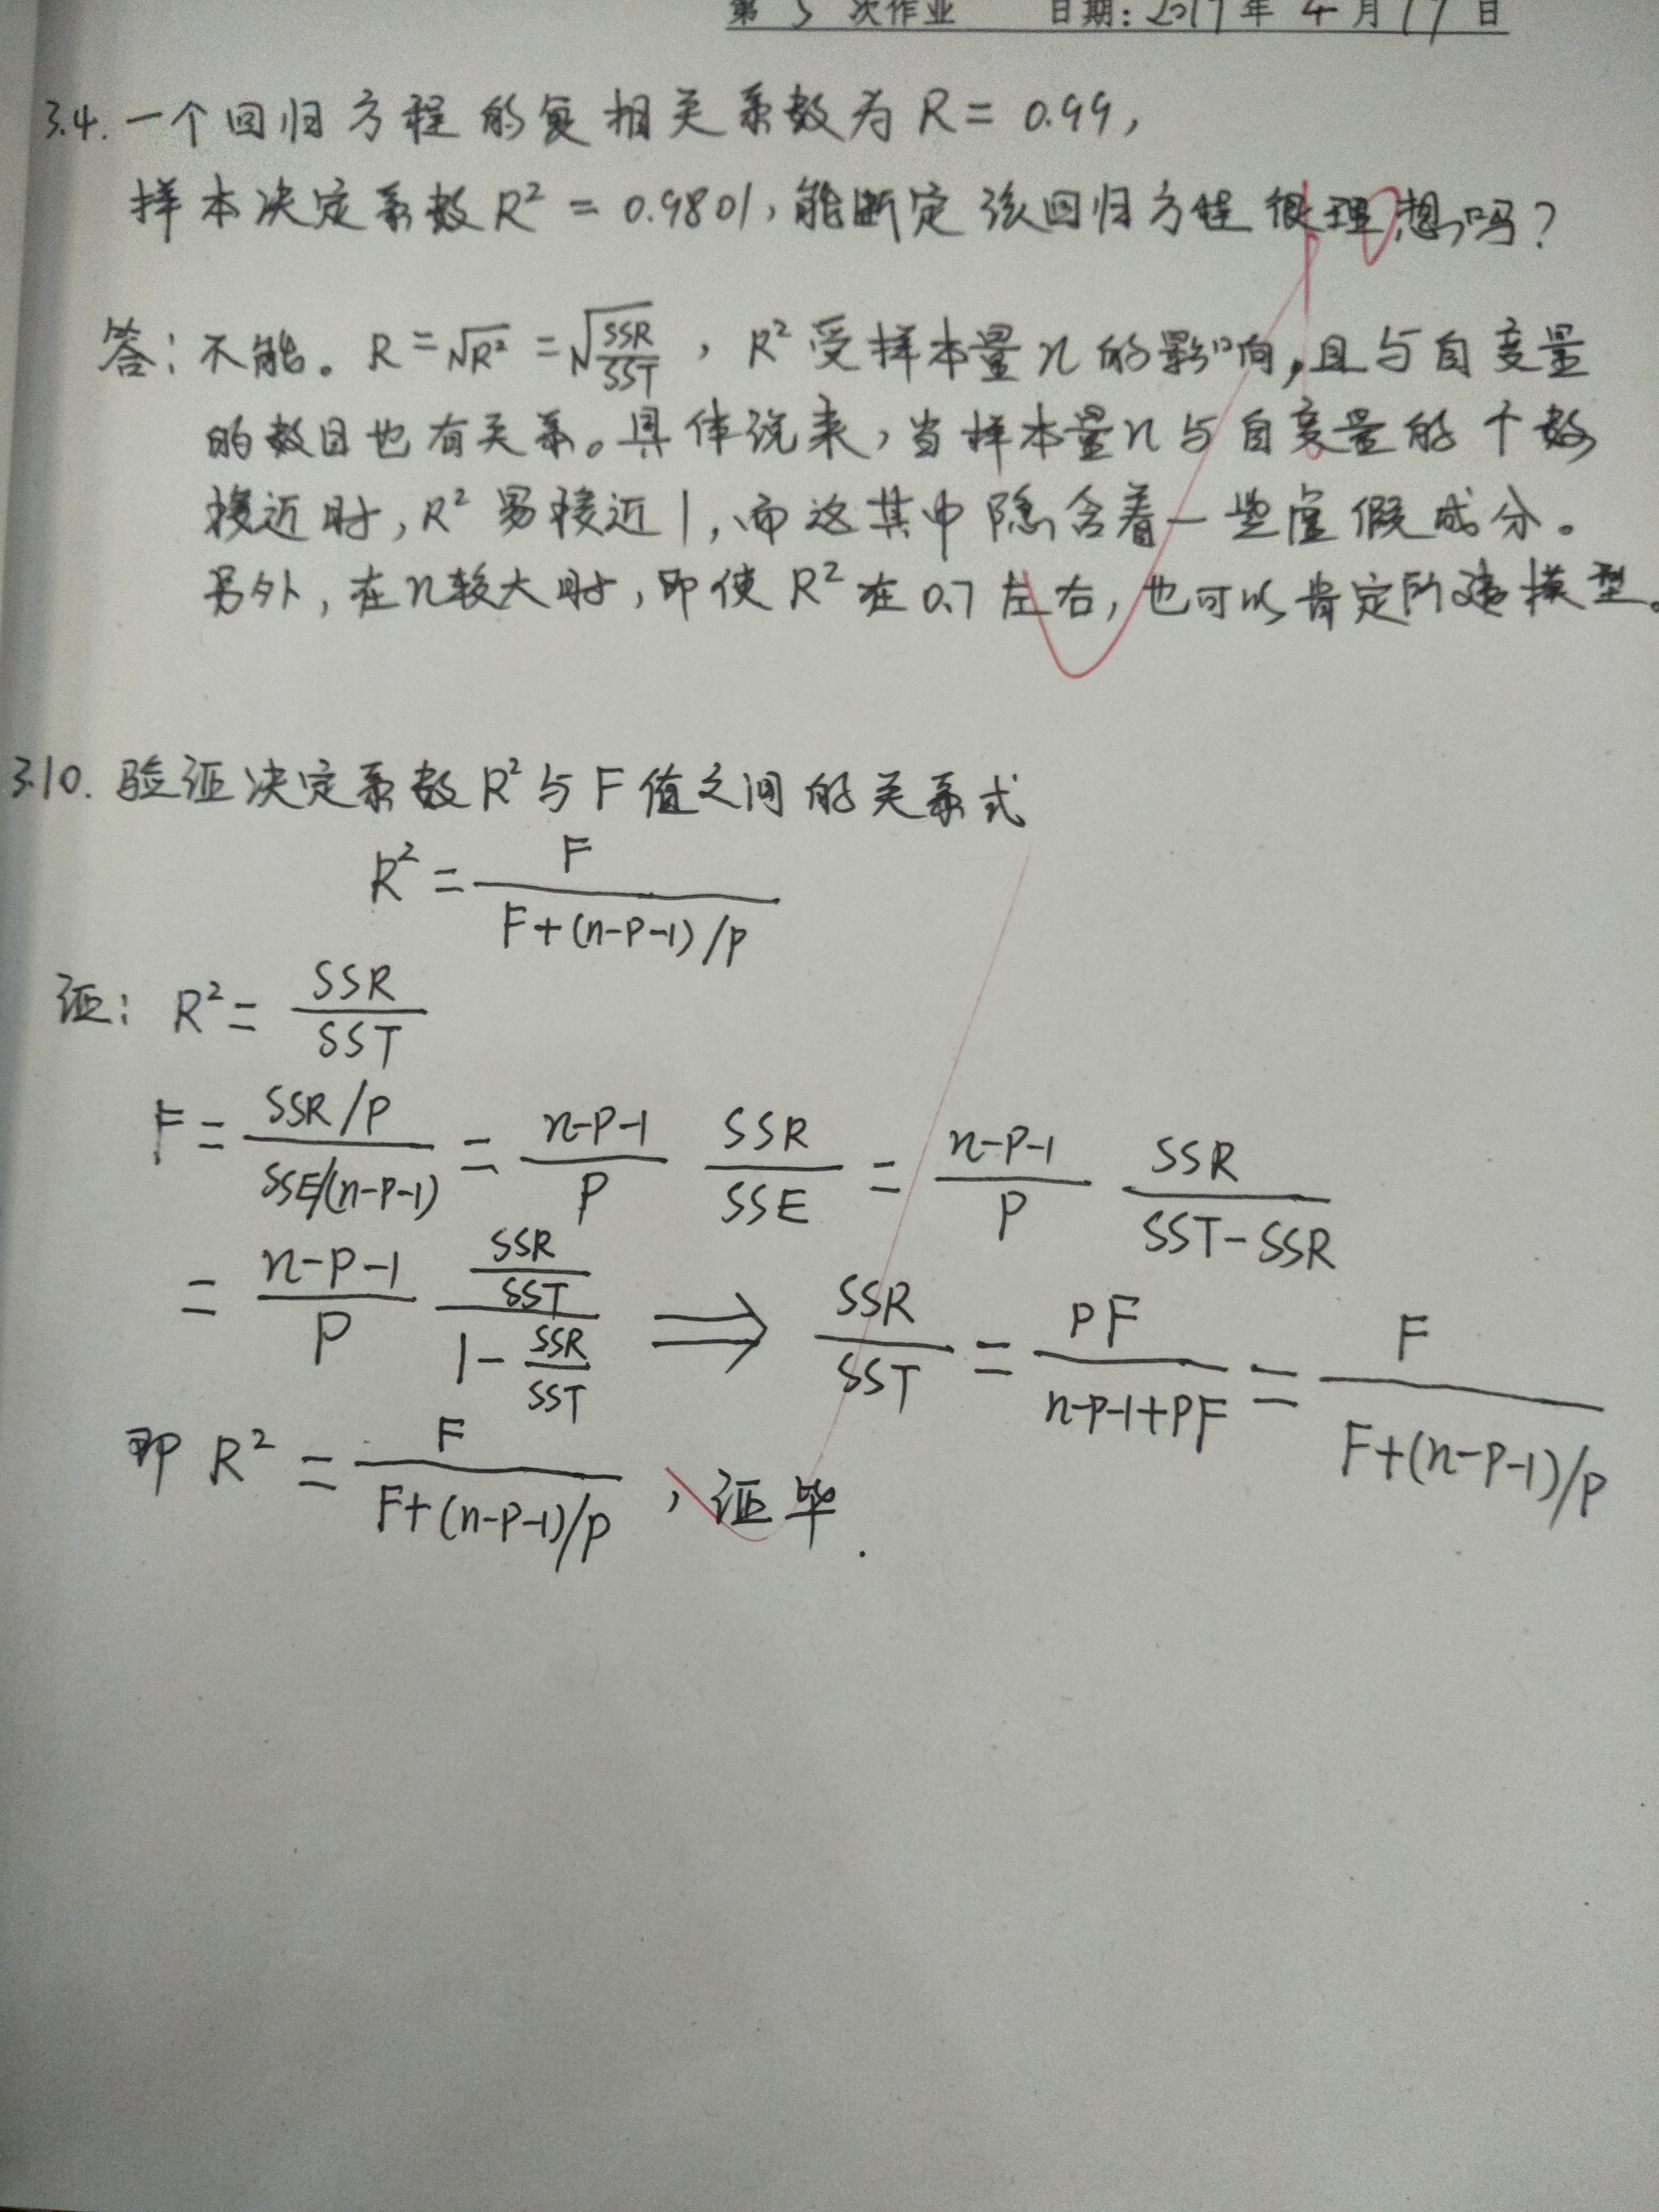 第 5 次作业 日期: 2017 年 4 月 19 日
3.4. 一个回归方程的复相关系数为 R = 0.99,
样本决定系数 R² = 0.9801, 能断定该回归方程很理想吗?
答: 不能。R = √R² = √(SSR/SST) , R² 受样本量 n 的影响, 且与自变量
的数目也有关系。具体说来, 当样本量 n 与自变量的个数
接近时, R² 易接近 1, 而这其中隐含着一些虚假成分。
另外, 在 n 较大时, 即使 R² 在 0.7 左右, 也可以肯定所建模型。
3.10. 验证决定系数 R² 与 F 值之间的关系式
R² = F / (F+(n-p-1)/p)
证: R² = SSR/SST
F = (SSR/p) / (SSE/(n-p-1)) = (n-p-1)/p SSR/SSE = (n-p-1)/p SSR/(SST-SSR)
= (n-p-1)/p (SSR/SST) / (1-SSR/SST) ⟹ SSR/SST = pF/(n-p-1+pF) = F / (F+(n-p-1)/p)
即 R² = F / (F+(n-p-1)/p) , 证毕.